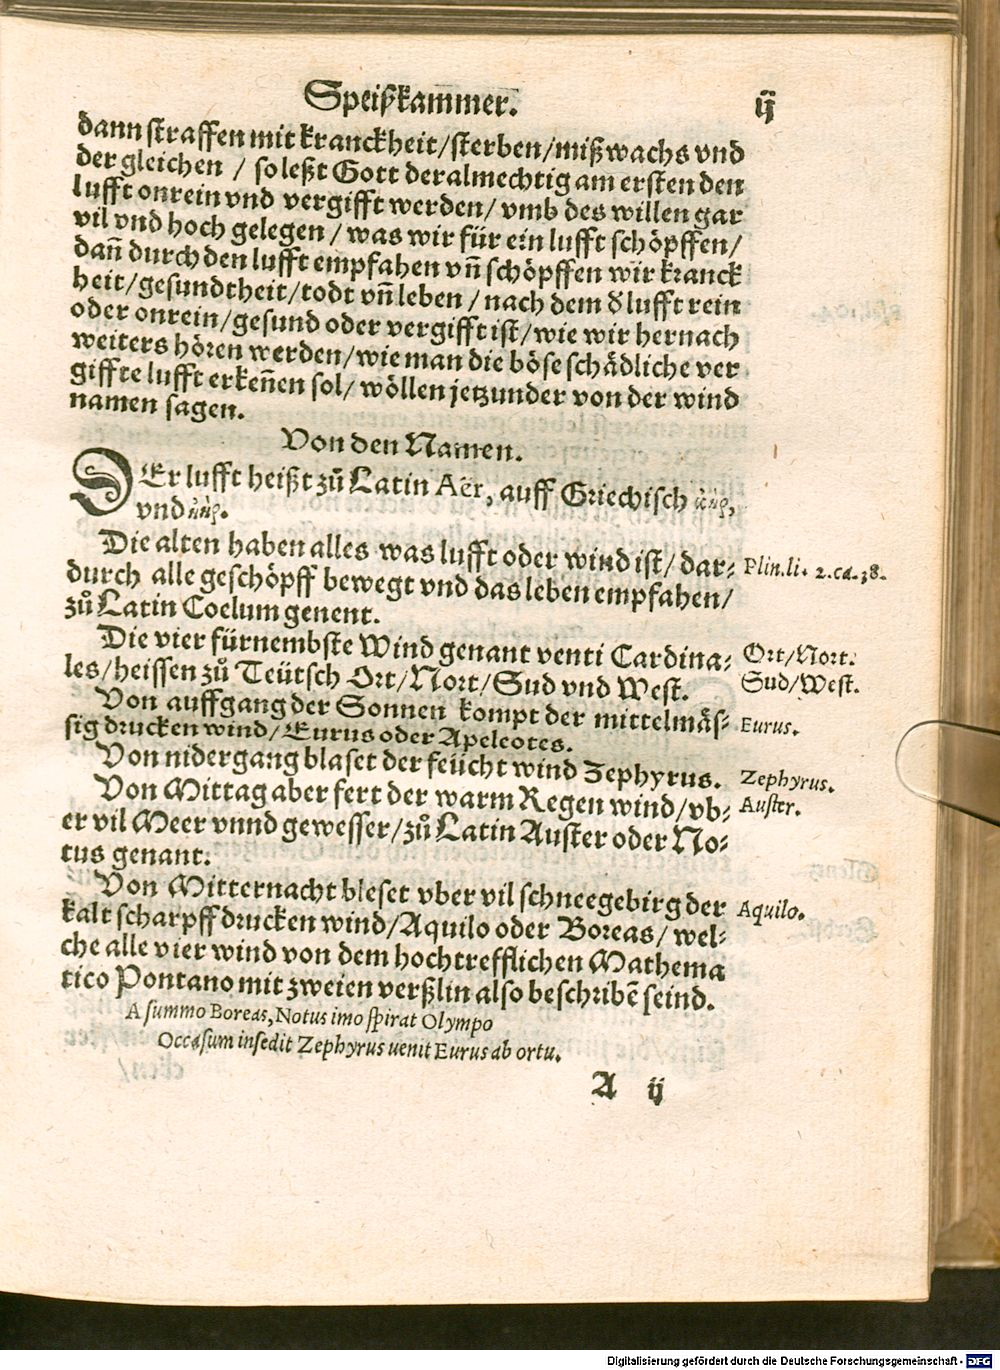 Speißkam̅mer.
ij
dann straffen mit kranckheit/sterben/mißwachs vnd
der gleichen / so leßt Gott der almechtig am ersten den
lufft onrein vnd vergifft werden/ vmb des willen gar
vil vnd hoch gelegen / was wir für ein lufft schöpffen/
dañ durch den lufft empfahen vñ schöpffen wir kranck
heit/gesundtheit/todt vñ leben / nach dem ď lufft rein
oder onrein/gesund oder vergifft ist/wie wir hernach
weiters hören werden/wie man die böse schädliche ver
giffte lufft erkeñen sol/ wöllen jetzunder von der wind
namen sagen.
Von den Namen.
DEr lufft heißt zů Latin Aër, auff Griechisch ἀὴρ,
vnd
Die alten haben alles was lufft oder wind ist/ dar-
Plin.li. 2.ca.38.
durch alle geschöpff bewegt vnd das leben empfahen/
zů Latin Coelum genent.
Die vier fürnembste Wind genant venti Cardina-
Ort/Nort.
les/heissen zů Teütsch Ort/Nort/Sud vnd West.
Sud/West.
Von auffgang der Sonnen kompt der mittelmäs-
Eurus.
sig drucken wind/Eurus oder Apeleotes.
Von nidergang blaset der feücht wind Zephyrus.
Zephyrus.
Von Mittag aber fert der warm Regen wind/vb-
Auster.
er vil Meer vnnd gewesser/zů Latin Auster oder No-
tus genant.
Von Mitternacht bleset vber vil schneegebirg der
Aquilo.
kalt scharpff drucken wind/Aquilo oder Boreas/ wel-
che alle vier wind von dem hochtrefflichen Mathema
tico Pontano mit zweien verßlin also beschribẽ seind.
A summo Boreas, Notus imo spirat Olympo
Occasum insedit Zephyrus uenit Eurus ab ortu.
A ij
Digitalisierung gefördert durch die Deutsche Forschungsgemeinschaft - DFG